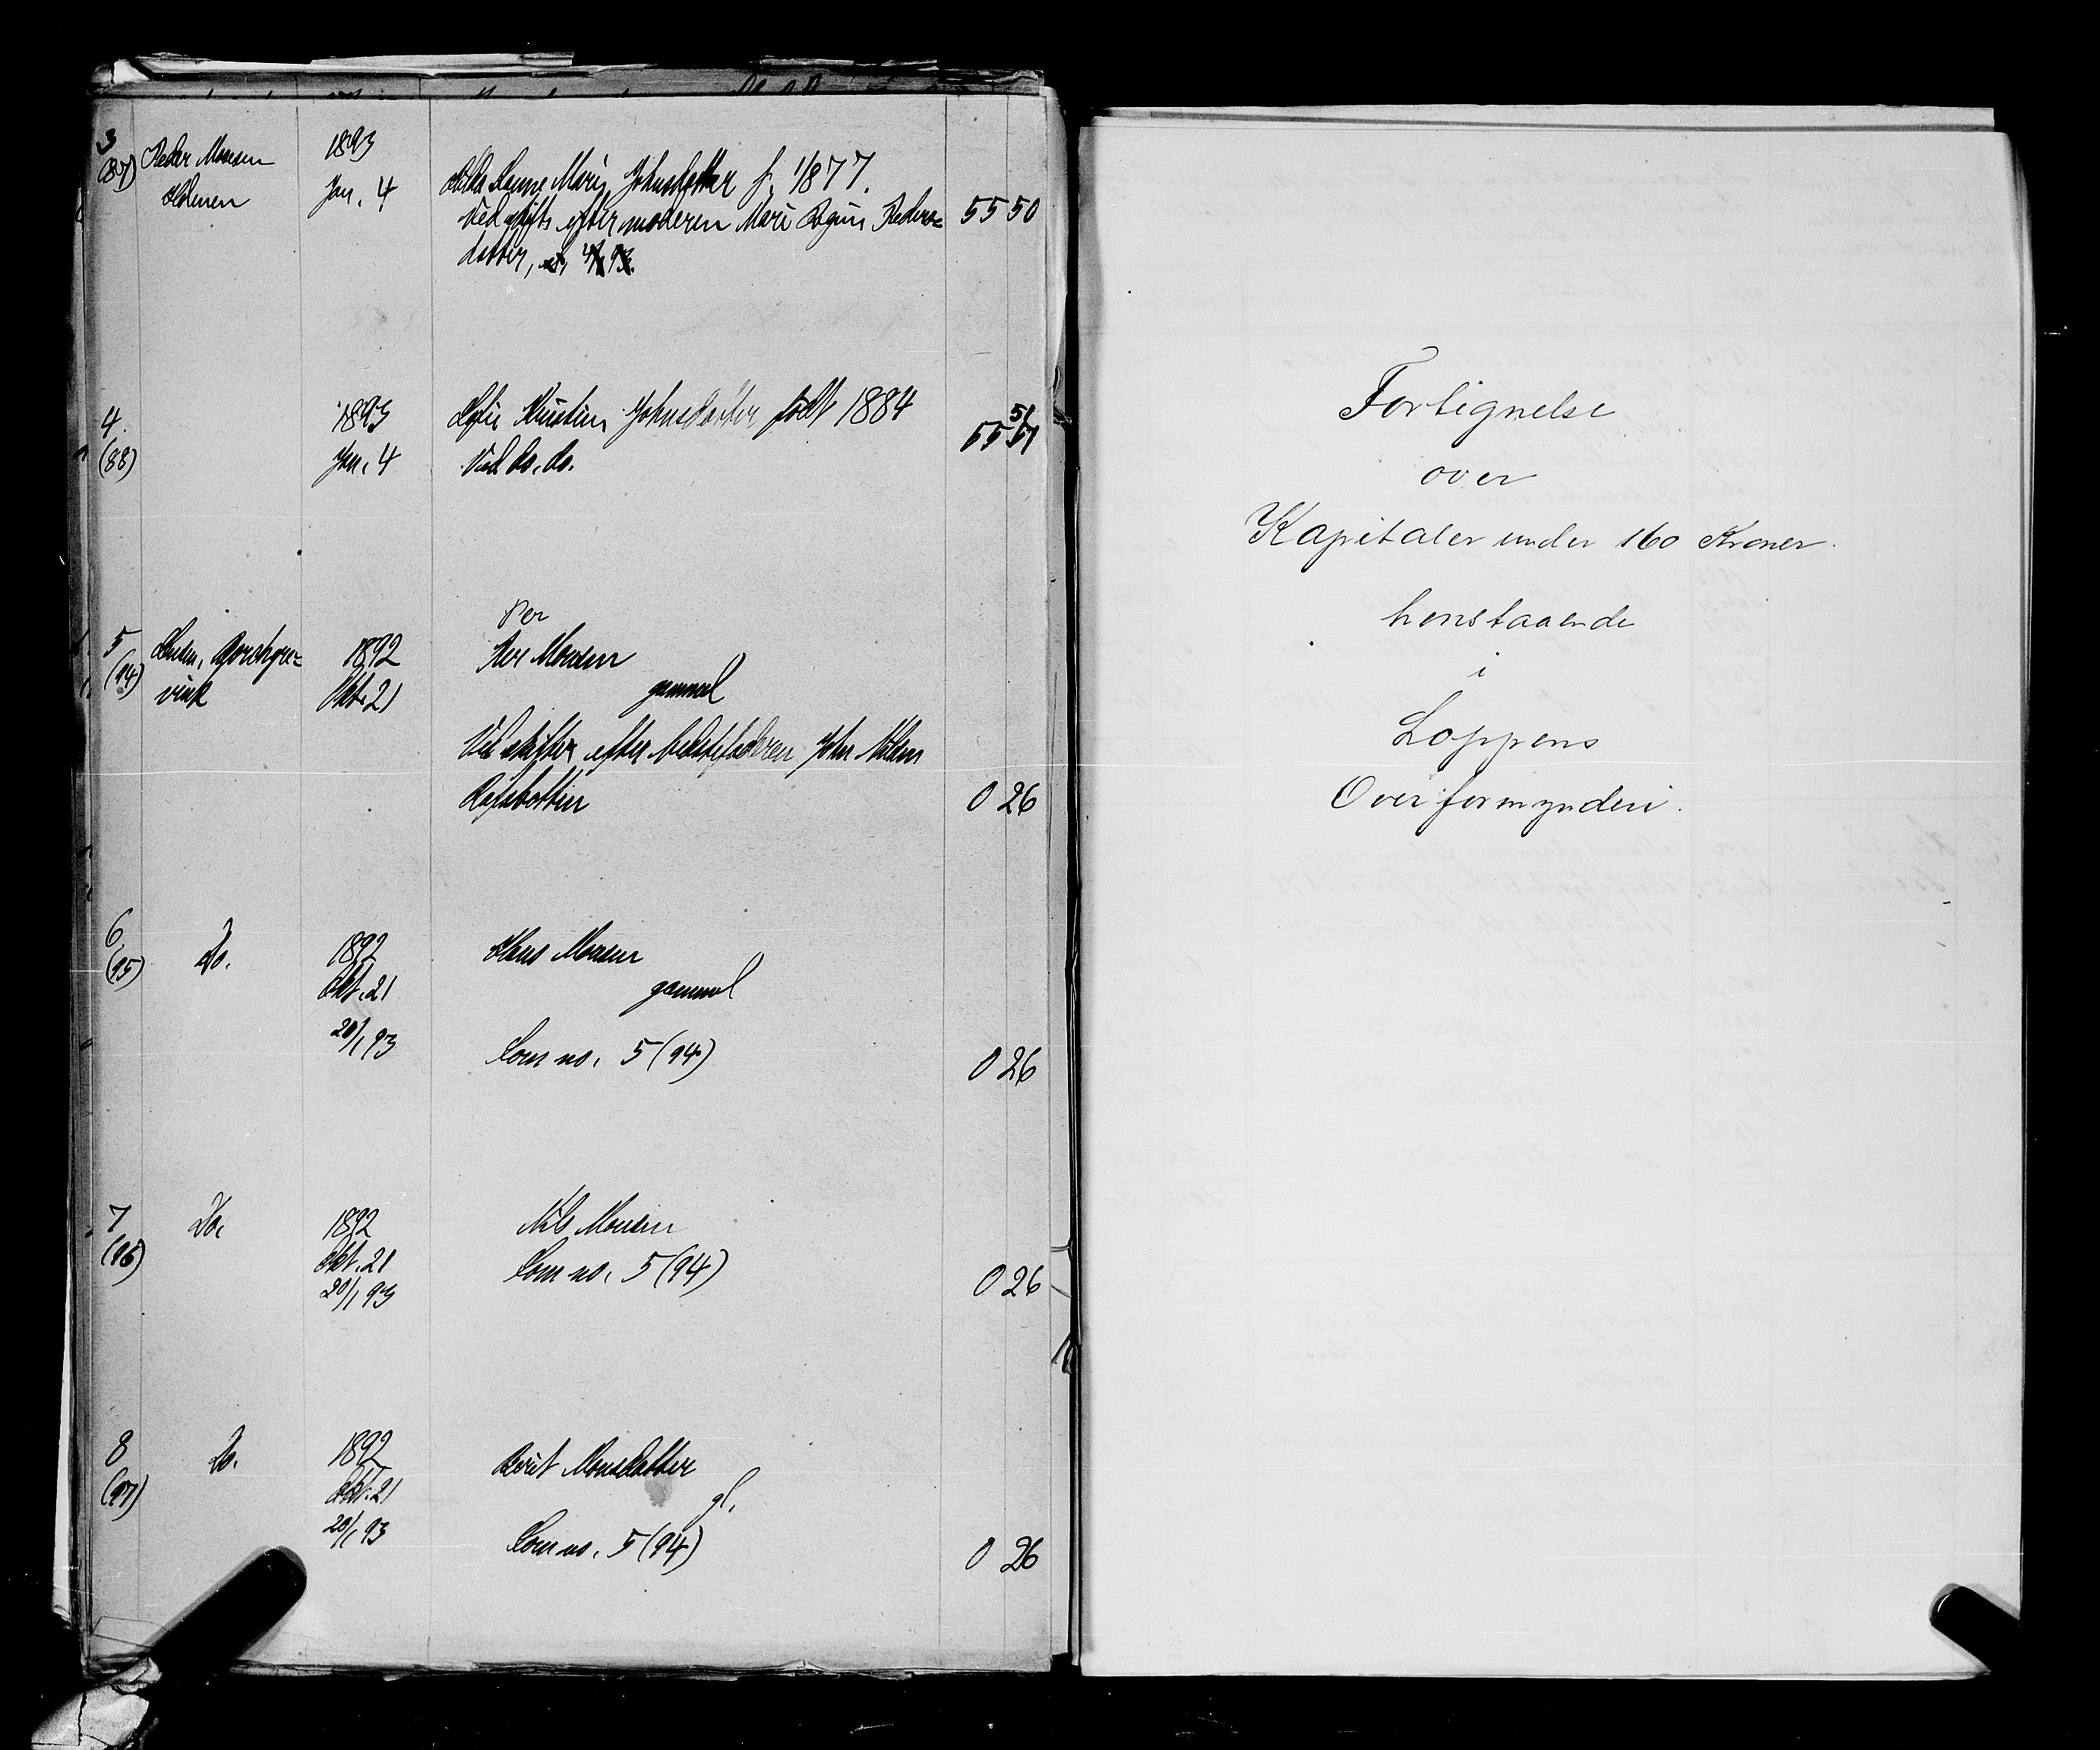 3
(87)
Peder Monsen
Holmen
1893
Jan. 4
Hilda Hanne Marie Johnsdatter f. 1/8 77.
Ved skifte efter moderen Mari Peders=
datter,
55 50
4
(88)
1893
Jan. 4
Kristine Johnsdatter født 1884
Ved do. do.
51
55 51
5
(94)
vink
1892
Okt. 21
Per
Per Monsen
gammel
Ved skifter efter bedstefaderen John Nilsen
Rafsbotten
0 26
6
(95)
Do.
1892
Okt. 21
20/1 93
Hans Monsen
gammel
Som no. 5 (94)
0 26
7
(96)
Do.
1892
Okt. 21
20/1 93
Nils Monsen
Som no. 5 (94)
0 26
8
(97)
Do.
1892
Okt. 21
20/1 93
Berit Monsdatter
gl.
Som no. 5 (94)
0 26
Fortegnelse
over
Kapitaler under 160 Kroner.
henstaaende
i
Loppens
Overformynderi.